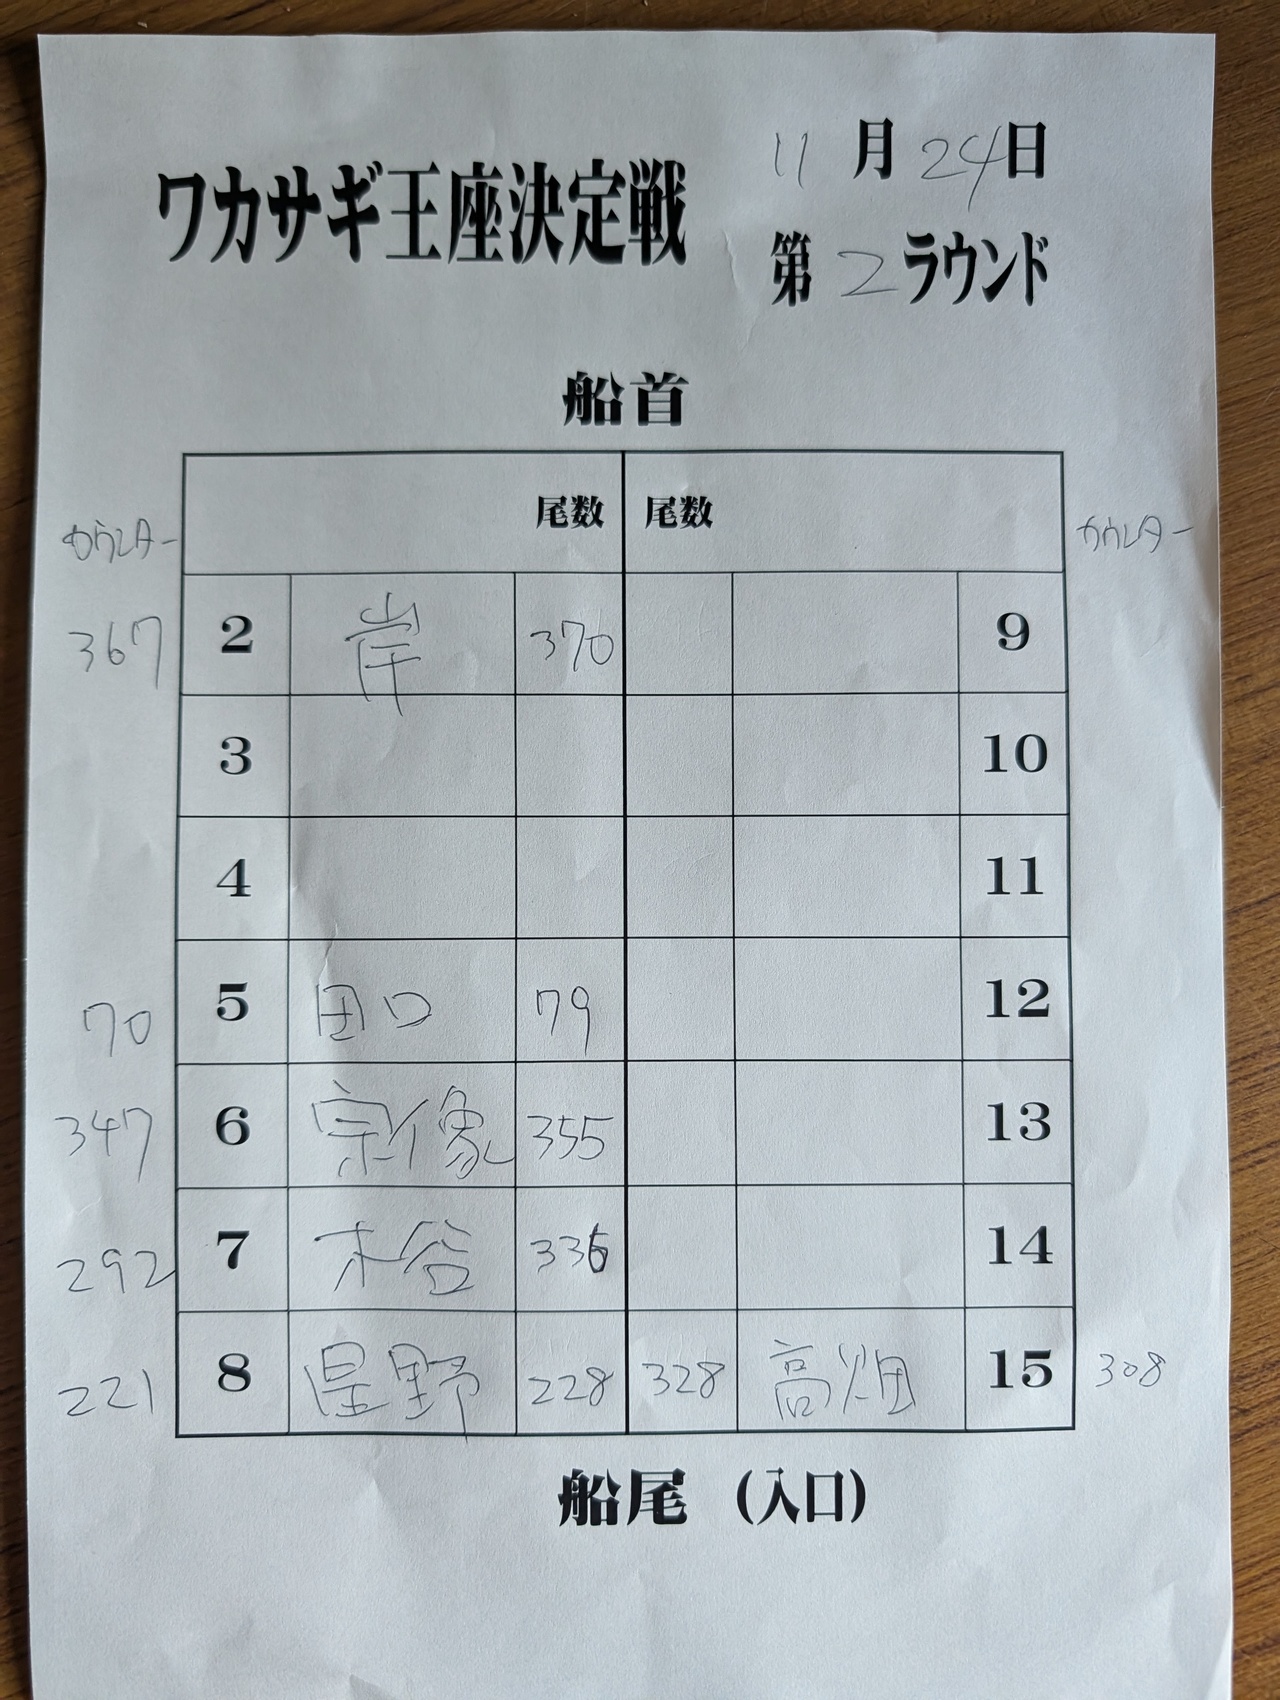 11月24日
ワカサギ王座決定戦
第2ラウンド
船首
カウンター 尾数 尾数 カウンター
367 2 岸 370 9
3 10
4 11
70 5 田口 79 12
347 6 宗像 355 13
292 7 木谷 336 14
221 8 星野 228 328 高畑 15 308
船尾 (入口)